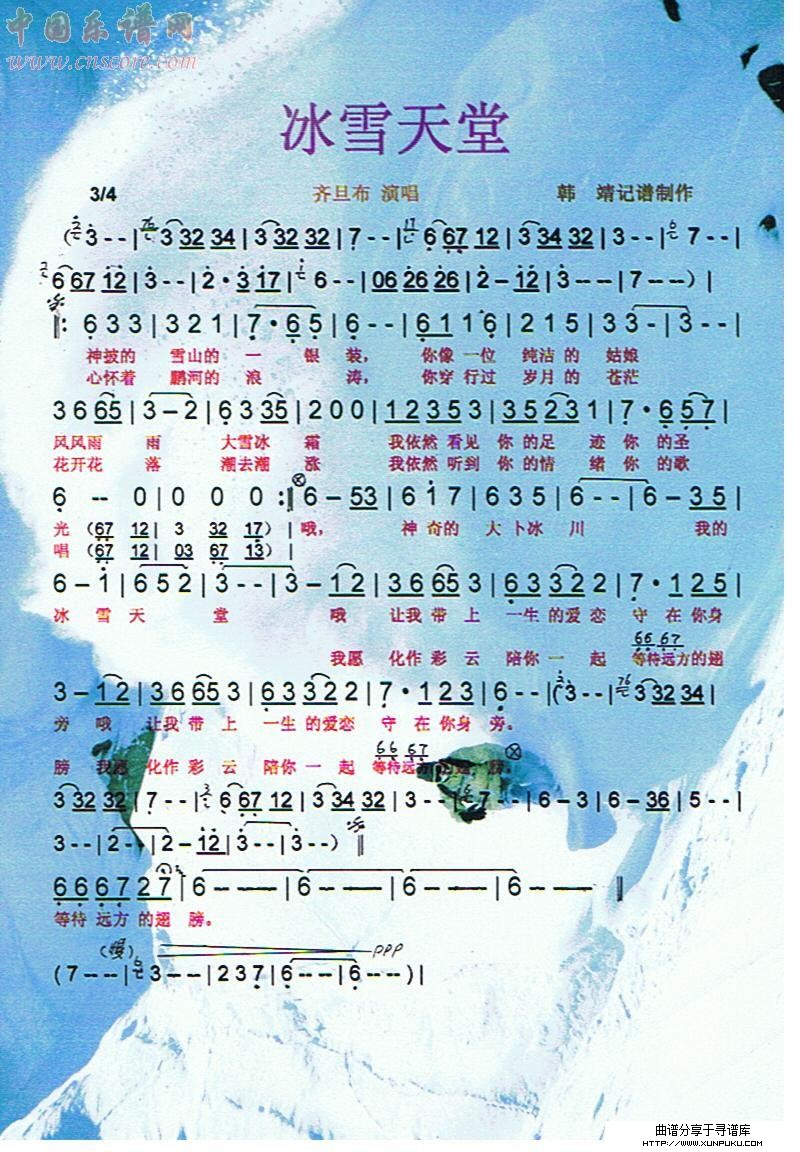 中国乐谱网
www.cnscore.com
冰雪天堂
3/4 齐旦布 演唱 韩 靖记谱制作
(3--|3 32 34|3 32 32|7--|6 67 12|3 34 32|3--|7--|
6 67 12|3--|2·3 17|6--|06 26 26|2-12|3---|7---)|
‖: 6 3 3|3 2 1|7·6 5|6--|6 1 1 6|2 1 5|3 3-|3--|
神披的 雪山的 一 银 装, 你像 一位 纯洁 的 姑娘
心怀着 鹏河的 浪 涛, 你穿 行过 岁月 的 苍茫
3 6 65|3-2|6 3 35|2 0 0|1 2 3 5 3|3 5 2 3 1|7·6 5 7|
风风雨 雨 大雪冰 霜 我依然 看见 你 的足 迹 你 的圣
花开花 落 潮去潮 涨 我依然 听到 你 的情 绪 你 的歌
6 -- 0|0 0 0 :‖ 6-53|6 1 7|6 3 5|6--|6-3 5|
光 (67 12|3 32 17)| 哦, 神 奇的 大 卜冰 川 我的
唱 (67 12|03 67 13)|
6-1|6 5 2|3--|3-12|3 6 65 3|6 3 32 2|7·1 2 5|
冰 雪 天 堂 哦 让我 带 上 一生 的爱 恋 守 在 你身
66 67
我愿 化作 彩 云 陪你 一 起 等待远方的翅
3-12|3 6 65 3|6 3 32 2|7·1 2 3|6--|(3--|3 32 34|
旁 哦 让我 带 上 一生 的爱恋 守 在 你身 旁。
66 67
膀 我愿 化作 彩 云 陪你 一 起 等待远方的翅 膀。
3 32 32|7--|6 67 12|3 34 32|3--|7--|6-3|6-36|5--|
3--|2--|2-12|3--|3--)‖
6 6 6 7 2 7|6---|6---|6---|6--- ‖
等待 远方 的翅 膀。
(慢) ppp
(7---|3---|2 3 7|6---|6---)|
曲谱分享于寻谱库
HTTP://WWW.XUNPUKU.COM